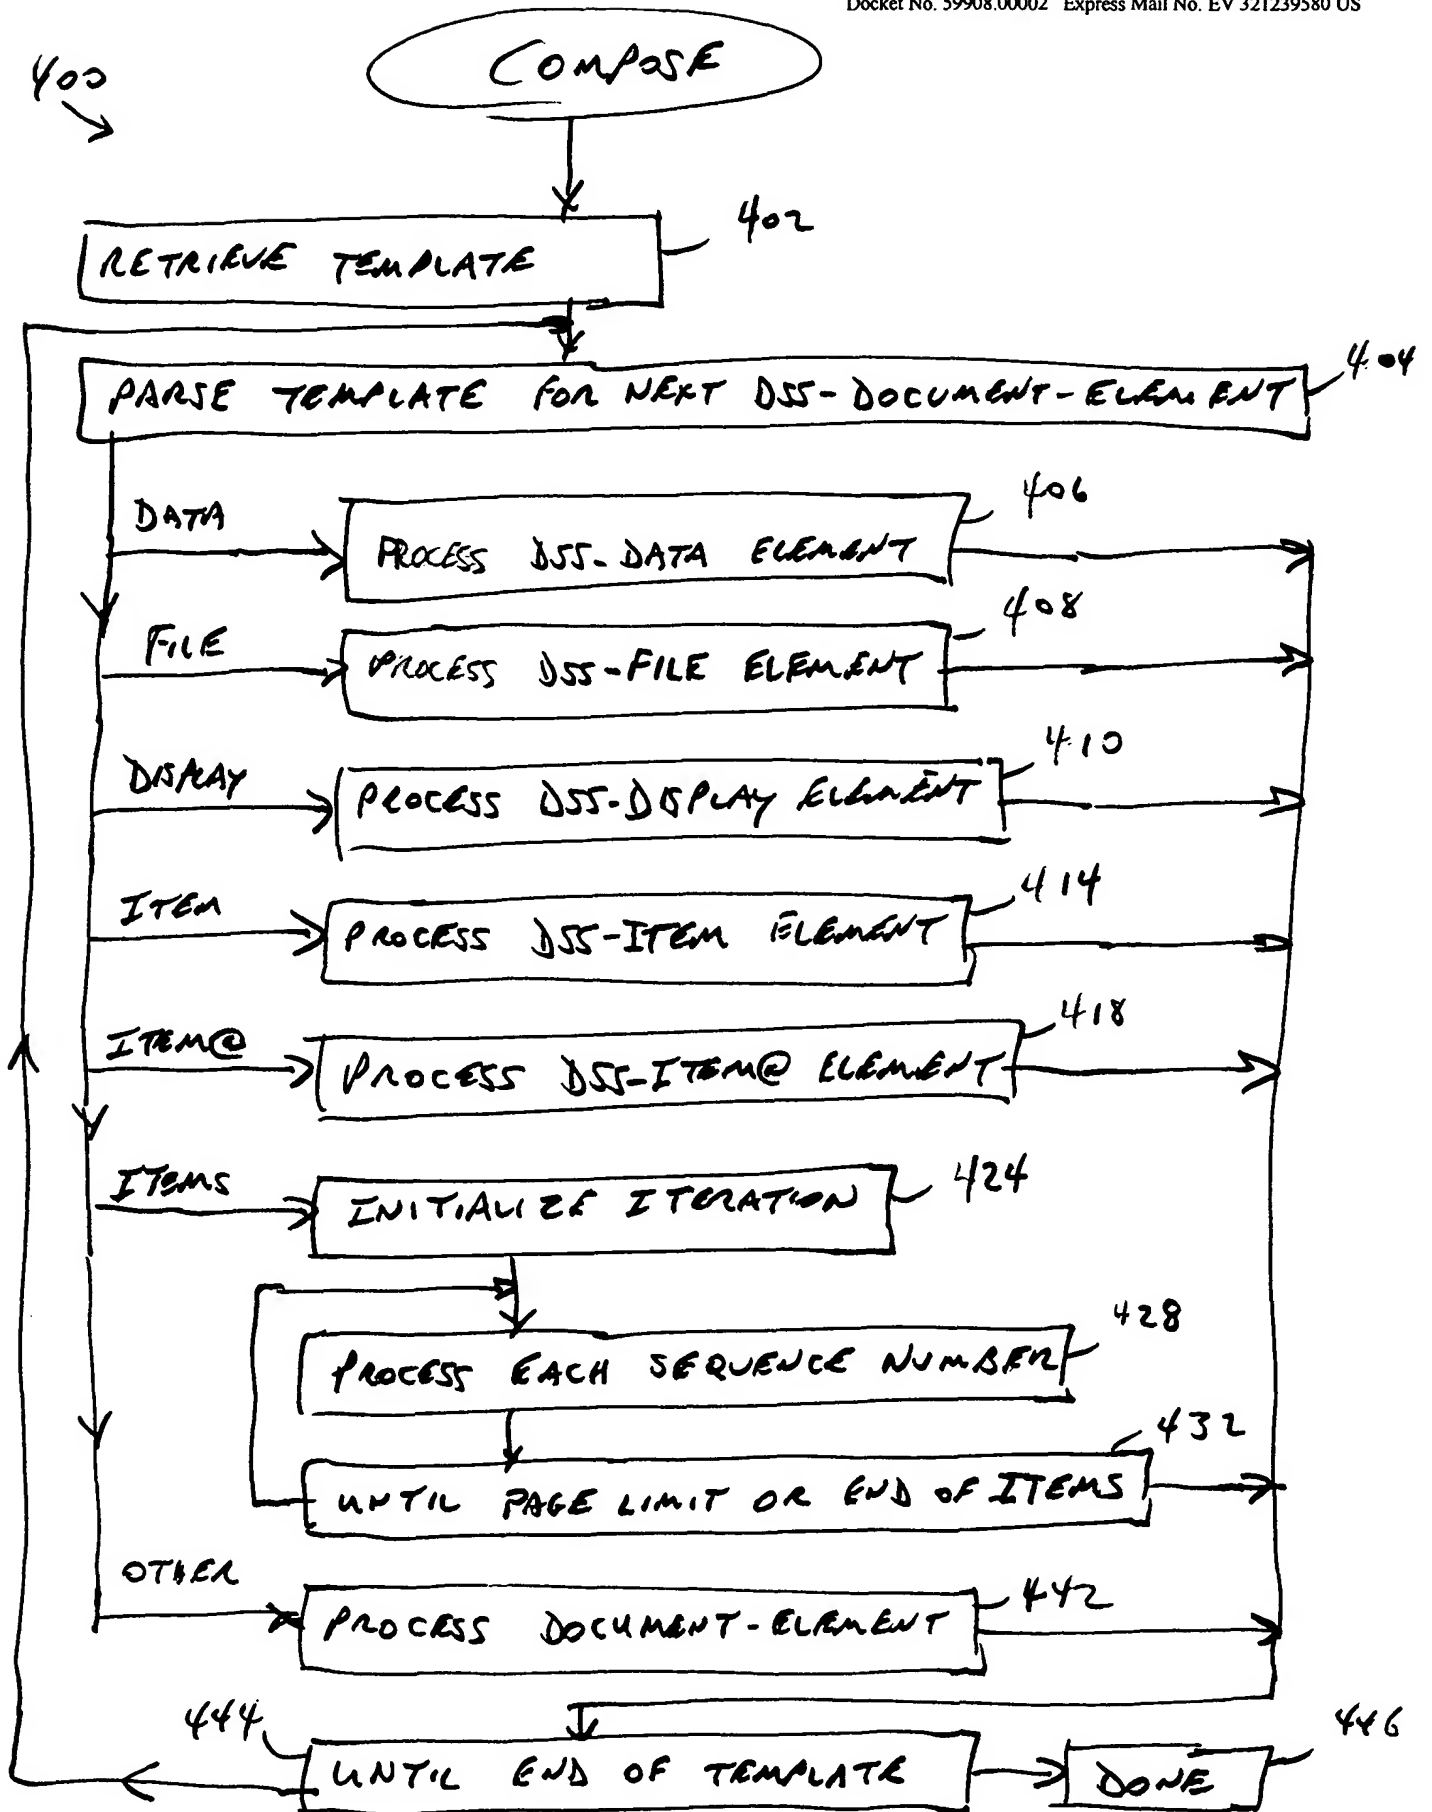 Docket No. 59908.00002 Express Mail No. EV 321239580 US
400
COMPOSE
402
RETRIEVE TEMPLATE
404
PARSE TEMPLATE FOR NEXT DSS-DOCUMENT-ELEMENT
406
DATA
PROCESS DSS-DATA ELEMENT
408
FILE
PROCESS DSS-FILE ELEMENT
410
DISPLAY
PROCESS DSS-DISPLAY ELEMENT
414
ITEM
PROCESS DSS-ITEM ELEMENT
418
ITEM@
PROCESS DSS-ITEM@ ELEMENT
424
ITEMS
INITIALIZE ITERATION
428
PROCESS EACH SEQUENCE NUMBER
432
UNTIL PAGE LIMIT OR END OF ITEMS
OTHER
442
PROCESS DOCUMENT-ELEMENT
444
446
UNTIL END OF TEMPLATE
DONE